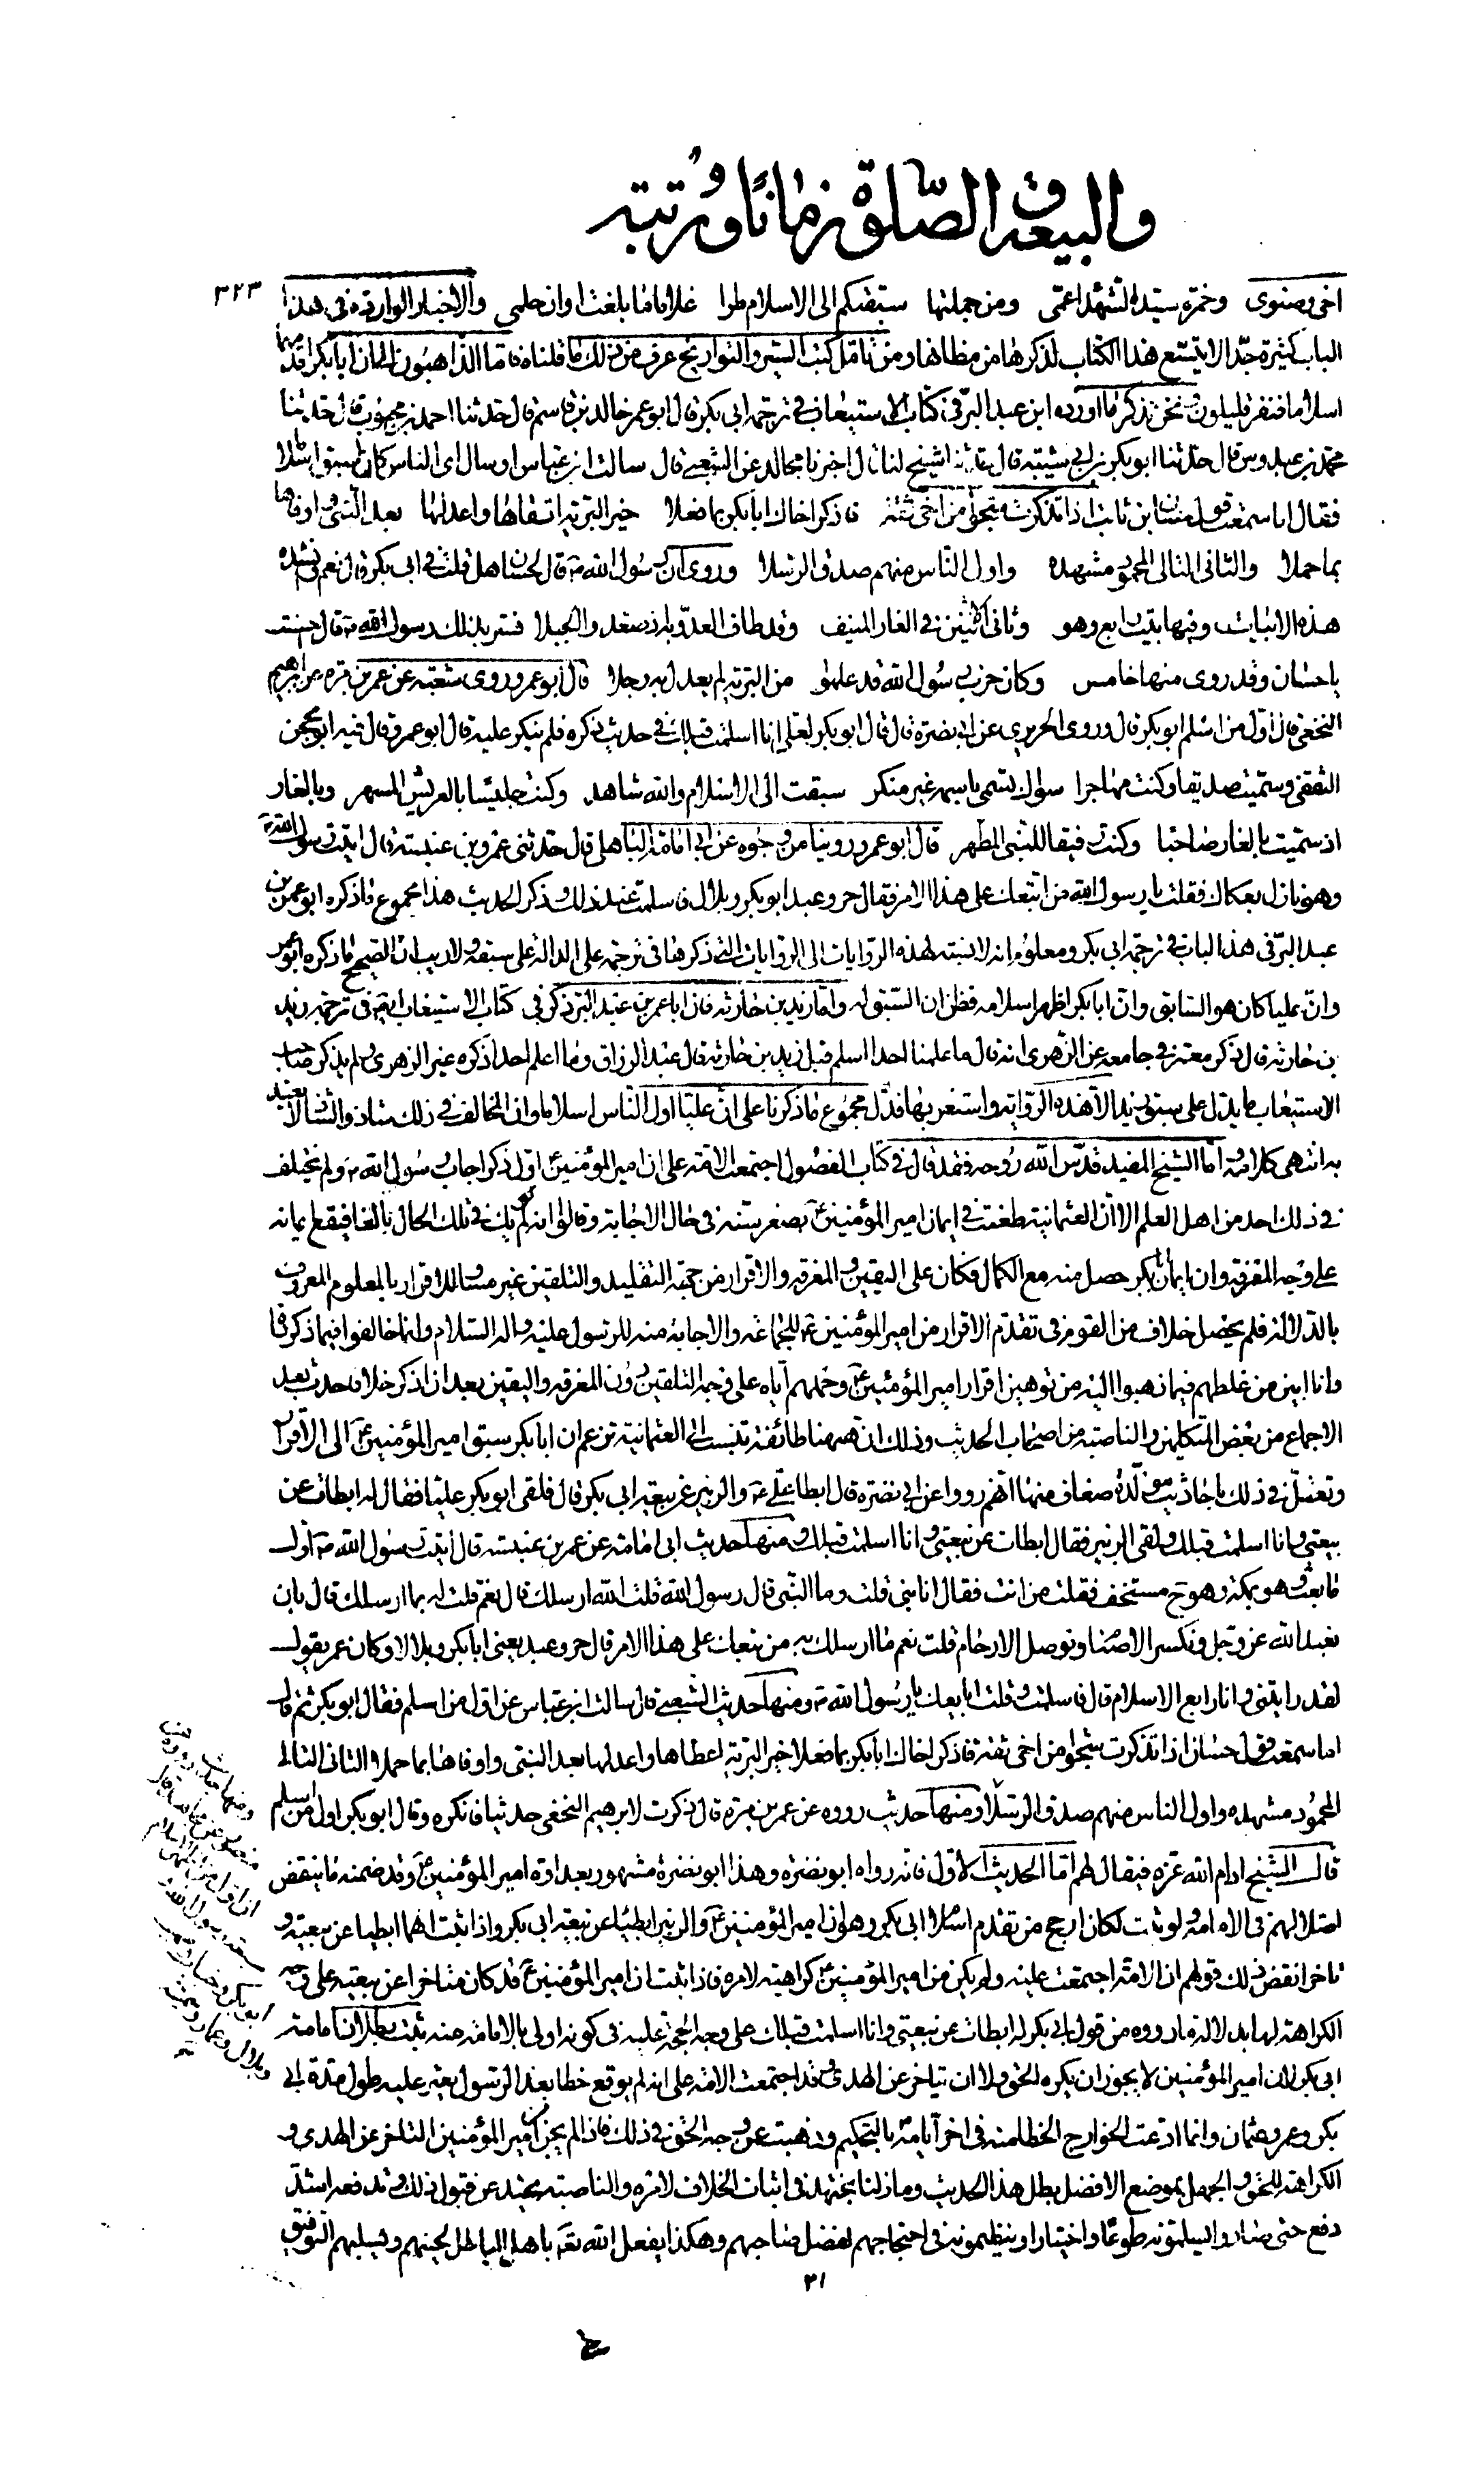 والبيعة والصّلوة زمانًا ورُتبته
٣٢٣
اخى وصنوى وحمزة سيّد الشّهداء عمّى ومن جملتها سبقتكم الى الاسلام طرا غلاما ما بلغت اوان حلمى والاخبار الواردة فى هذا
الباب كثيرة جدّا لا يتسع هذا الكتاب لذكرها من مظانها ومن تامّل كتب السّير والتواريخ عرف من ذلك ما قلناه فامّا الذّاهبون الى ان ابا بكر اقدمها
اسلاما فنفر قليلون ونحن نذكر ما اورده ابن عبد البرّ فى كتاب الاستيعاب فى ترجمة ابى بكر قال ابو عمر خالد بن قاسم قال حدثنا احمد بن محبوب قال حدثنا
محمّد بن عبدوس قال حدّثنا ابو بكر بن ابى شيبة قال حدّثنا شيخ لنا قال اخبرنا مجالد عن الشّعبى قال سالت ابن عبّاس او سال اى الناس كان اسبق اسلاما
فقال اما سمعت قول حسّان بن ثابت اذا تذكّرت شجوا من اخى ثقة فاذكر اخاك ابا بكر بما فعلا خير البريّة اتقاها واعدلها بعد النّبى واوفاها
بما حملا والثانى التالى المحمود مشهده واول النّاس منهم صدق الرسلا وروى ان رسول الله ص قال لحسّان هل قلت فى ابى بكر قال نعم فانشده
هذه الابيات وفيها بيت رابع وهو وثانى اثنين فى الغار المنيف وقد طاف العدوّ به اذ صعّد والجبلا فسر بذلك رسول الله ص قال احسنت
يا حسّان وقد روى منها خامس وكان حزب رسول الله قد علموا من البريّة لم يعدل به رجلا قال ابو عمر وروى شعبة عن عمر بن مرة عن ابراهيم
النخعى قال اوّل من اسلم ابو بكر قال وروى الحريرى عن ابى نضرة قال قال ابو بكر لعلى انا اسلمت قبلك فى حديث ذكره فلم ينكر عليه قال ابو عمر وقال فيه ابو محجن
الثقفى وسمّيت صديقا وكنت مهاجرا سواك يسمى باسمه غير منكر سبقت الى الاسلام والله شاهد وكنت جليسا بالعريش المشهر وبالغار
اذ سمّيت بالغار صاحبا وكنت رفيقا للنّبى المطهر قال ابو عمر وروينا من وجوه عن ابى امامة الباهلى قال حدثنى عمرو بن عنبسة قال اتيت رسول الله ص
وهو نازل بعكاظ فقلت يا رسول الله من اتبعك على هذا الامر فقال حر وعبد ابو بكر وبلال فاسلمت عند ذلك وذكر الحديث هذا مجموع ما ذكره ابو عمر بن
عبد البرّ فى هذا الباب فى ترجمة ابى بكر ومعلوم انه لا نسبة لهذه الروايات الى الروايات التى ذكرها فى ترجمة على الدالة على سبقه ولا ريب ان الصّحيح ما ذكره ابو عمر
وانّ عليا كان هو السّابق وانّ ابا بكر اظهر اسلامه فظن ان السّبق له وامّا زيد بن حارثة فان ابا عمر بن عبد البرّ ذكر فى كتاب الاستيعاب ايضا فى ترجمة زيد
بن حارثة قال ذكر معمر فى جامعه عن الزّهرى انه قال ما علمنا احدا اسلم قبل زيد بن حارثة قال عبد الرزاق وما اعلم احدا ذكره غير الزهرى ولم يذكر صاحب
الاستيعاب ما يدلّ على سبق زيد الا هذه الرّواية واستغربها فدلّ مجموع ما ذكرنا على انّ عليّا اوّل النّاس اسلاما وان المخالف فى ذلك شاذ والشّاذ لا يعتد
به انتهى كلامه وامّا الشّيخ المفيد قدّس الله روحه فقد قال فى كتاب الفصُول اجتمعت الامّة على ان امير المؤمنين ع اول ذكر اجاب رسُول الله ص ولم يختلف
فى ذلك احد من اهل العلم الا انّ العثمانية طعنت فى ايمان امير المؤمنين ع بصغر سنّه فى حال الاجابة وقالوا انه لم يك فى تلك الحال بالغا فيقع ايمانه
على وجه المعرفة وان ايمان ابى بكر حصل منه مع الكمال فكان على اليقين والمعرفة والاقرار من جهة التقليد والتلقين غير مساو للاقرار بالمعلوم المعروف
بالدّلالة فلم يحصل خلاف من القوم فى تقدّم الاقرار من امير المؤمنين ع للجماعة والاجابة منه للرسول عليه واله السّلام وانما خالفوا فيما ذكرناه
وانا ابين من غلطهم فيما ذهبوا اليه من توهين اقرار امير المؤمنين ع وحملهم اياه على وجه التلقين دون المعرفة واليقين بعد ان اذكر خلافا حدث بعد
الاجماع من بعض المتكلمين والناصبة من اصحاب الحديث وذلك ان هيهنا طائفة تنسب الى العثمانية تزعم ان ابا بكر سبق امير المؤمنين ع الى الاقرار
وتعتلّ فى ذلك باحاديث مولّدة ضعاف منها انّهم رووا عن ابى نضرة قال ابطا علّى ع والزبير عن بيعة ابى بكر قال فلقى ابو بكر عليا فقال له ابطات عن
بيعتى وانا اسلمت قبلك ولقى الزبير فقال ابطات عن بيعتى وانا اسلمت قبلك ومنها حديث ابى امامة عن عمر بن عنبسة قال اتيت رسُول الله ص اول
ما بعث وهو بمكة وهو ح مستخف فقلت من انت فقال انا نبى قلت وما النّبى قال رسول الله قلت الله ارسلك قال نعم قلت له بما ارسلك قال بان
نعبد الله عزّ وجل ونكسر الاصنام ونوصل الارحام قلت نعم ما ارسلك به من تبعك على هذا الامر قال حر وعبد يعنى ابا بكر وبلالا وكان عمر يقول
لقد رايتنى وانا رابع الاسلام قال فاسلمت وقلت ابايعك يا رسُول الله ص ومنها حديث الشّعبى قال سالت ابن عبّاس عن اوّل من اسلم فقال ابو بكر ثم قال
اما سمعت قول حسّان اذا تذكرت شجوا من اخى ثقة فاذكر اخاك ابا بكر بما فعلا خير البريّة اعطاها واعدلها بعد النبى واوفاها بما حملا الثانى التالى
المحمُود مشهده واول الناس منهم صدق الرسلا ومنها حديث رووه عن عمر بن مرة قال ذكرت لابرهيم النخعى حديثا فانكره وقال ابو بكر اول من اسلم
قال الشّيخ ادام الله عزه فيقال لهم امّا الحديث الاول فانه رواه ابو نضرة وهذا ابو نضرة مشهور بعداوة امير المؤمنين ع وقد ضمنه ما ينقض
اصلا لهم فى الامامة ولو ثبت لكان ارجح من تقدم اسلام ابى بكر وهو ان امير المؤمنين ع والزبير ابطئا عن بيعة ابى بكر واذا ثبت انهما ابطيا عن بيعته و
تاخرا نقض ذلك قولهم ان الامّة اجتمعت عليه ولم يكن من امير المؤمنين ع كراهية لامره فاذا ثبت ان امير المؤمنين ع قد كان متاخرا عن بيعته على وجه
الكراهة لها بدلالة ما رووه من قول ابى بكر له ابطات عن بيعتى وانا اسلمت قبلك على وجه الحجّة عليه فى كونه اولى بالامامة منه ثبت بطلان امامة
ابى بكر لان امير المؤمنين لا يجوز ان يكره الحق ولا ان يتاخر عن الهدى وقد اجتمعت الامّة على انه لم يوقع خطا بعد الرّسول يعثر عليه طول مدّة ابى
بكر وعمر وعثمان وانما ادعت الخوارج الخطا منه فى اخر ايامه بالتحكيم وذهبت عن وجه الحق فى ذلك فاذا لم يجز من امير المؤمنين التاخر عن الهدى و
الكراهة للحق والجهل بموضع الافضل بطل هذا الحديث وما زلنا نجتهد فى اثبات الخلاف لامره والناصبة تحيد عن قبول ذلك وتدفعه اشدّ
دفع حتى صاروا يسلمونه طوعًا واختيارا وينظمونه فى احتجاجهم لفضل صاحبهم وهكذا يفعل الله تعَ باهل الباطل لحينهم ويسلبهم التوفيق
ومنها حديث رووه عن
منصور عن مجاهد قال
ان اول من اظهر الاسلام
سبعة رسول الله و
ابو بكر وخباب وصهيب
وبلال وعمار وسمية
٣١